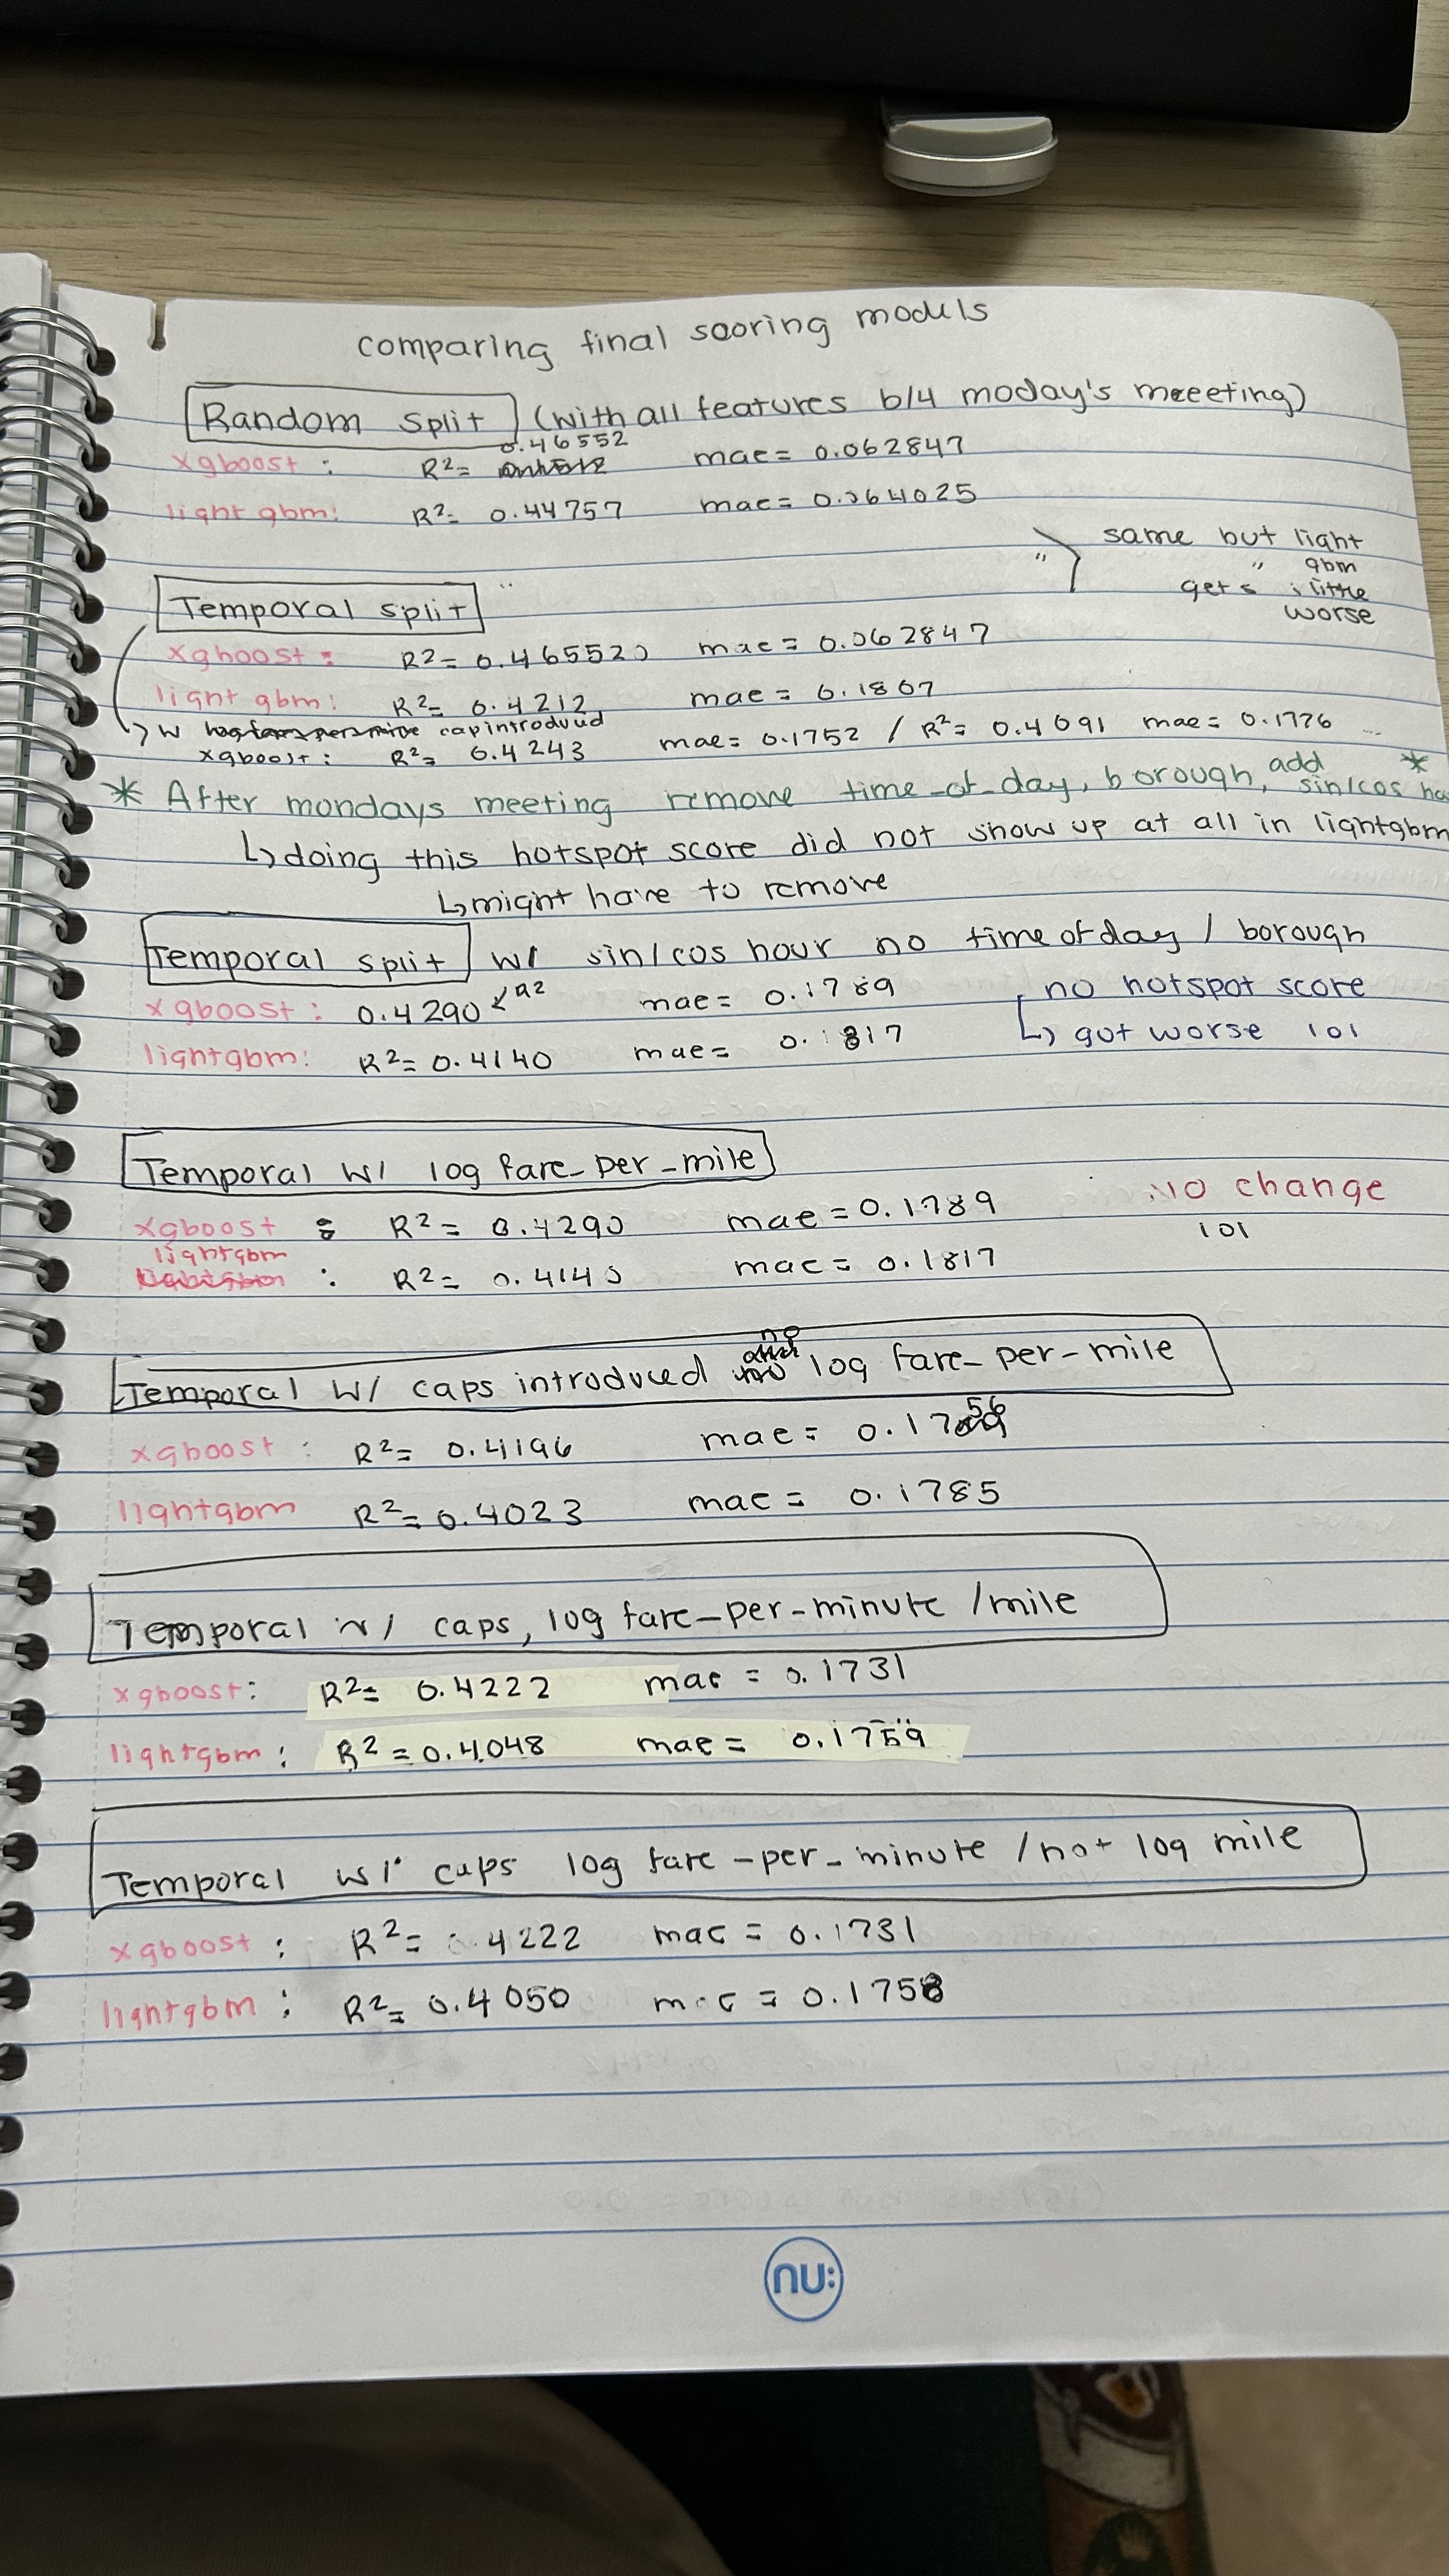 comparing final scoring models
Random split (with all features b/4 moday's meeeting)
0.46552
xgboost: R²= mae= 0.062847
light gbm: R²= 0.44757 mae= 0.064025
" } same but light
" gbm
gets a little
worse
Temporal split
xgboost: R²= 0.465520 mae= 0.062847
light gbm: R²= 0.4212 mae = 0.1807
↳ w cap introduced
xgboost: R²= 0.4243 mae= 0.1752 / R²= 0.4091 mae= 0.1776
* After mondays meeting remove time_of_day, borough, add sin/cos *
↳ doing this hotspot score did not show up at all in lightgbm
↳ might have to remove
Temporal split w/ sin/cos hour no time of day / borough
xgboost: 0.4290 ↙R2 mae= 0.1789
no hotspot score
lightgbm: R²= 0.4140 mae= 0.1817
↳ got worse lol
Temporal w/ log fare_per_mile
xgboost: R²= 0.4290 mae = 0.1789
NO change
lol
lightgbm: R²= 0.4140 mae = 0.1817
Temporal w/ caps introduced no log fare_per_mile
xgboost: R²= 0.4196 mae= 0.1756
lightgbm R²= 0.4023 mae = 0.1785
Temporal w/ caps, log fare_per_minute / mile
xgboost: R²= 0.4222 mae = 0.1731
lightgbm: R² = 0.4048 mae = 0.1759
Temporal w/ caps log fare_per_minute / not log mile
xgboost: R²= 0.4222 mae = 0.1731
lightgbm: R²= 0.4050 mae = 0.1758
nu: